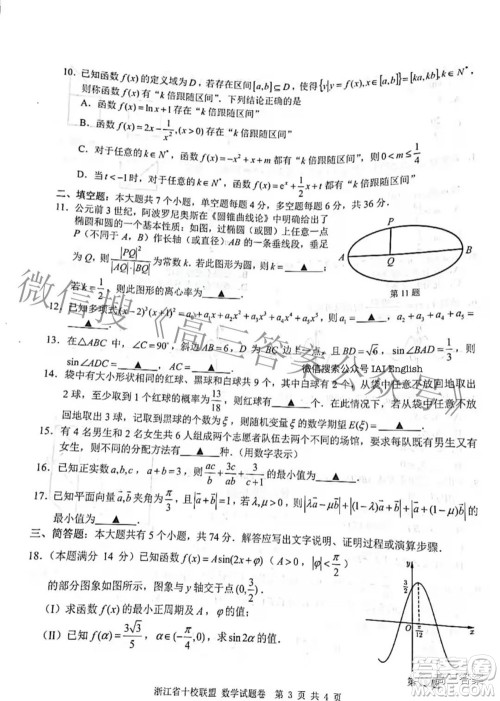 10. 已知函数 f(x) 的定义域为 D，若存在区间[a,b]⊆D，使得{y|y=f(x),x∈[a,b]}=[ka,kb],k∈N*，
则称函数 f(x) 有“k 倍跟随区间”. 下列结论正确的是
A. 函数 f(x)=ln x+1 存在“k 倍跟随区间”
B. 函数 f(x)=2x-1/x²,(x>0) 存在“k 倍跟随区间”
C. 对于任意的 k∈N*，函数 f(x)=-x²+x+m 都有“k 倍跟随区间”，则 0<m≤1/4
D. 当 t<-1时，对于任意的 k∈N*，函数 f(x)=eˣ+1/2x+t 都有“k 倍跟随区间”
二、填空题：本大题共 7 个小题，单空题每题 4 分，多空题每题 6 分，共 36 分.
11. 公元前 3 世纪，阿波罗尼奥斯在《圆锥曲线论》中明确给出了
椭圆和圆的一个基本性质：如图，过椭圆（或圆）上任意一点
P（不同于A，B）作长轴（或直径）AB 的一条垂线段，垂足
为 Q，则|PQ|²/(|AQ|·|BQ|)为常数 k. 若此图形为圆，则 k=▲；
若 k=，则此图形的离心率为▲.
P
A
Q
B
第 11 题
13. 在△ABC 中，∠C=90°，BD=√6，sin∠BAD=1/3，则
sin∠ADC=▲.
微信搜索公众号 IAI English
14. 袋中有大小形状相同的红球、白球和黑球共 9 个，其中白球有 2 个.从袋中任意取出
2 球，至少取到 1 个红球的概率为13/18，则红球的个数为▲；若每次从袋中任意不放
回地取出 2 球，记取到黑球的个数为ξ，则随机变量ξ的数学期望 E(ξ)=▲.
15. 有 4 名男生和 2 名女生共 6 名志愿者队伍去两个不同的场馆，要求每队既有男生又有
女生，则不同的分配方法有▲.（用数字表示）
16. 已知正实数 a,b,c，a+b=3，则 ac/b+3c/ab+3/(c+1) 的最小值为▲.
17. 已知平面向量 a,b 夹角为 π/3，且|a+b|=3，若λ,μ>0，则|λa-μb|+|(1-λ)a+b|+|a+(1-μ)b|
的最小值为▲.
三、简答题：本大题共有 5 个小题，共 74 分. 解答应写出文字说明、证明过程或演算步骤.
18.（本题满分 14 分）已知函数 f(x)=Asin(2x+φ)（A>0，|φ|<π/2）
的部分图象如图，且与 y 轴交于点(0,3/2).
(I) 求函数 f(x) 的最小正周期及 A，φ的值；
(II) 已知 f(α)=3√3/5，求 sin2α 的值.
y
3/2
O
π/12
x
浙江省十校联盟 数学试题卷 第 3 页 共 4 页
微信搜《高三答案公众号》